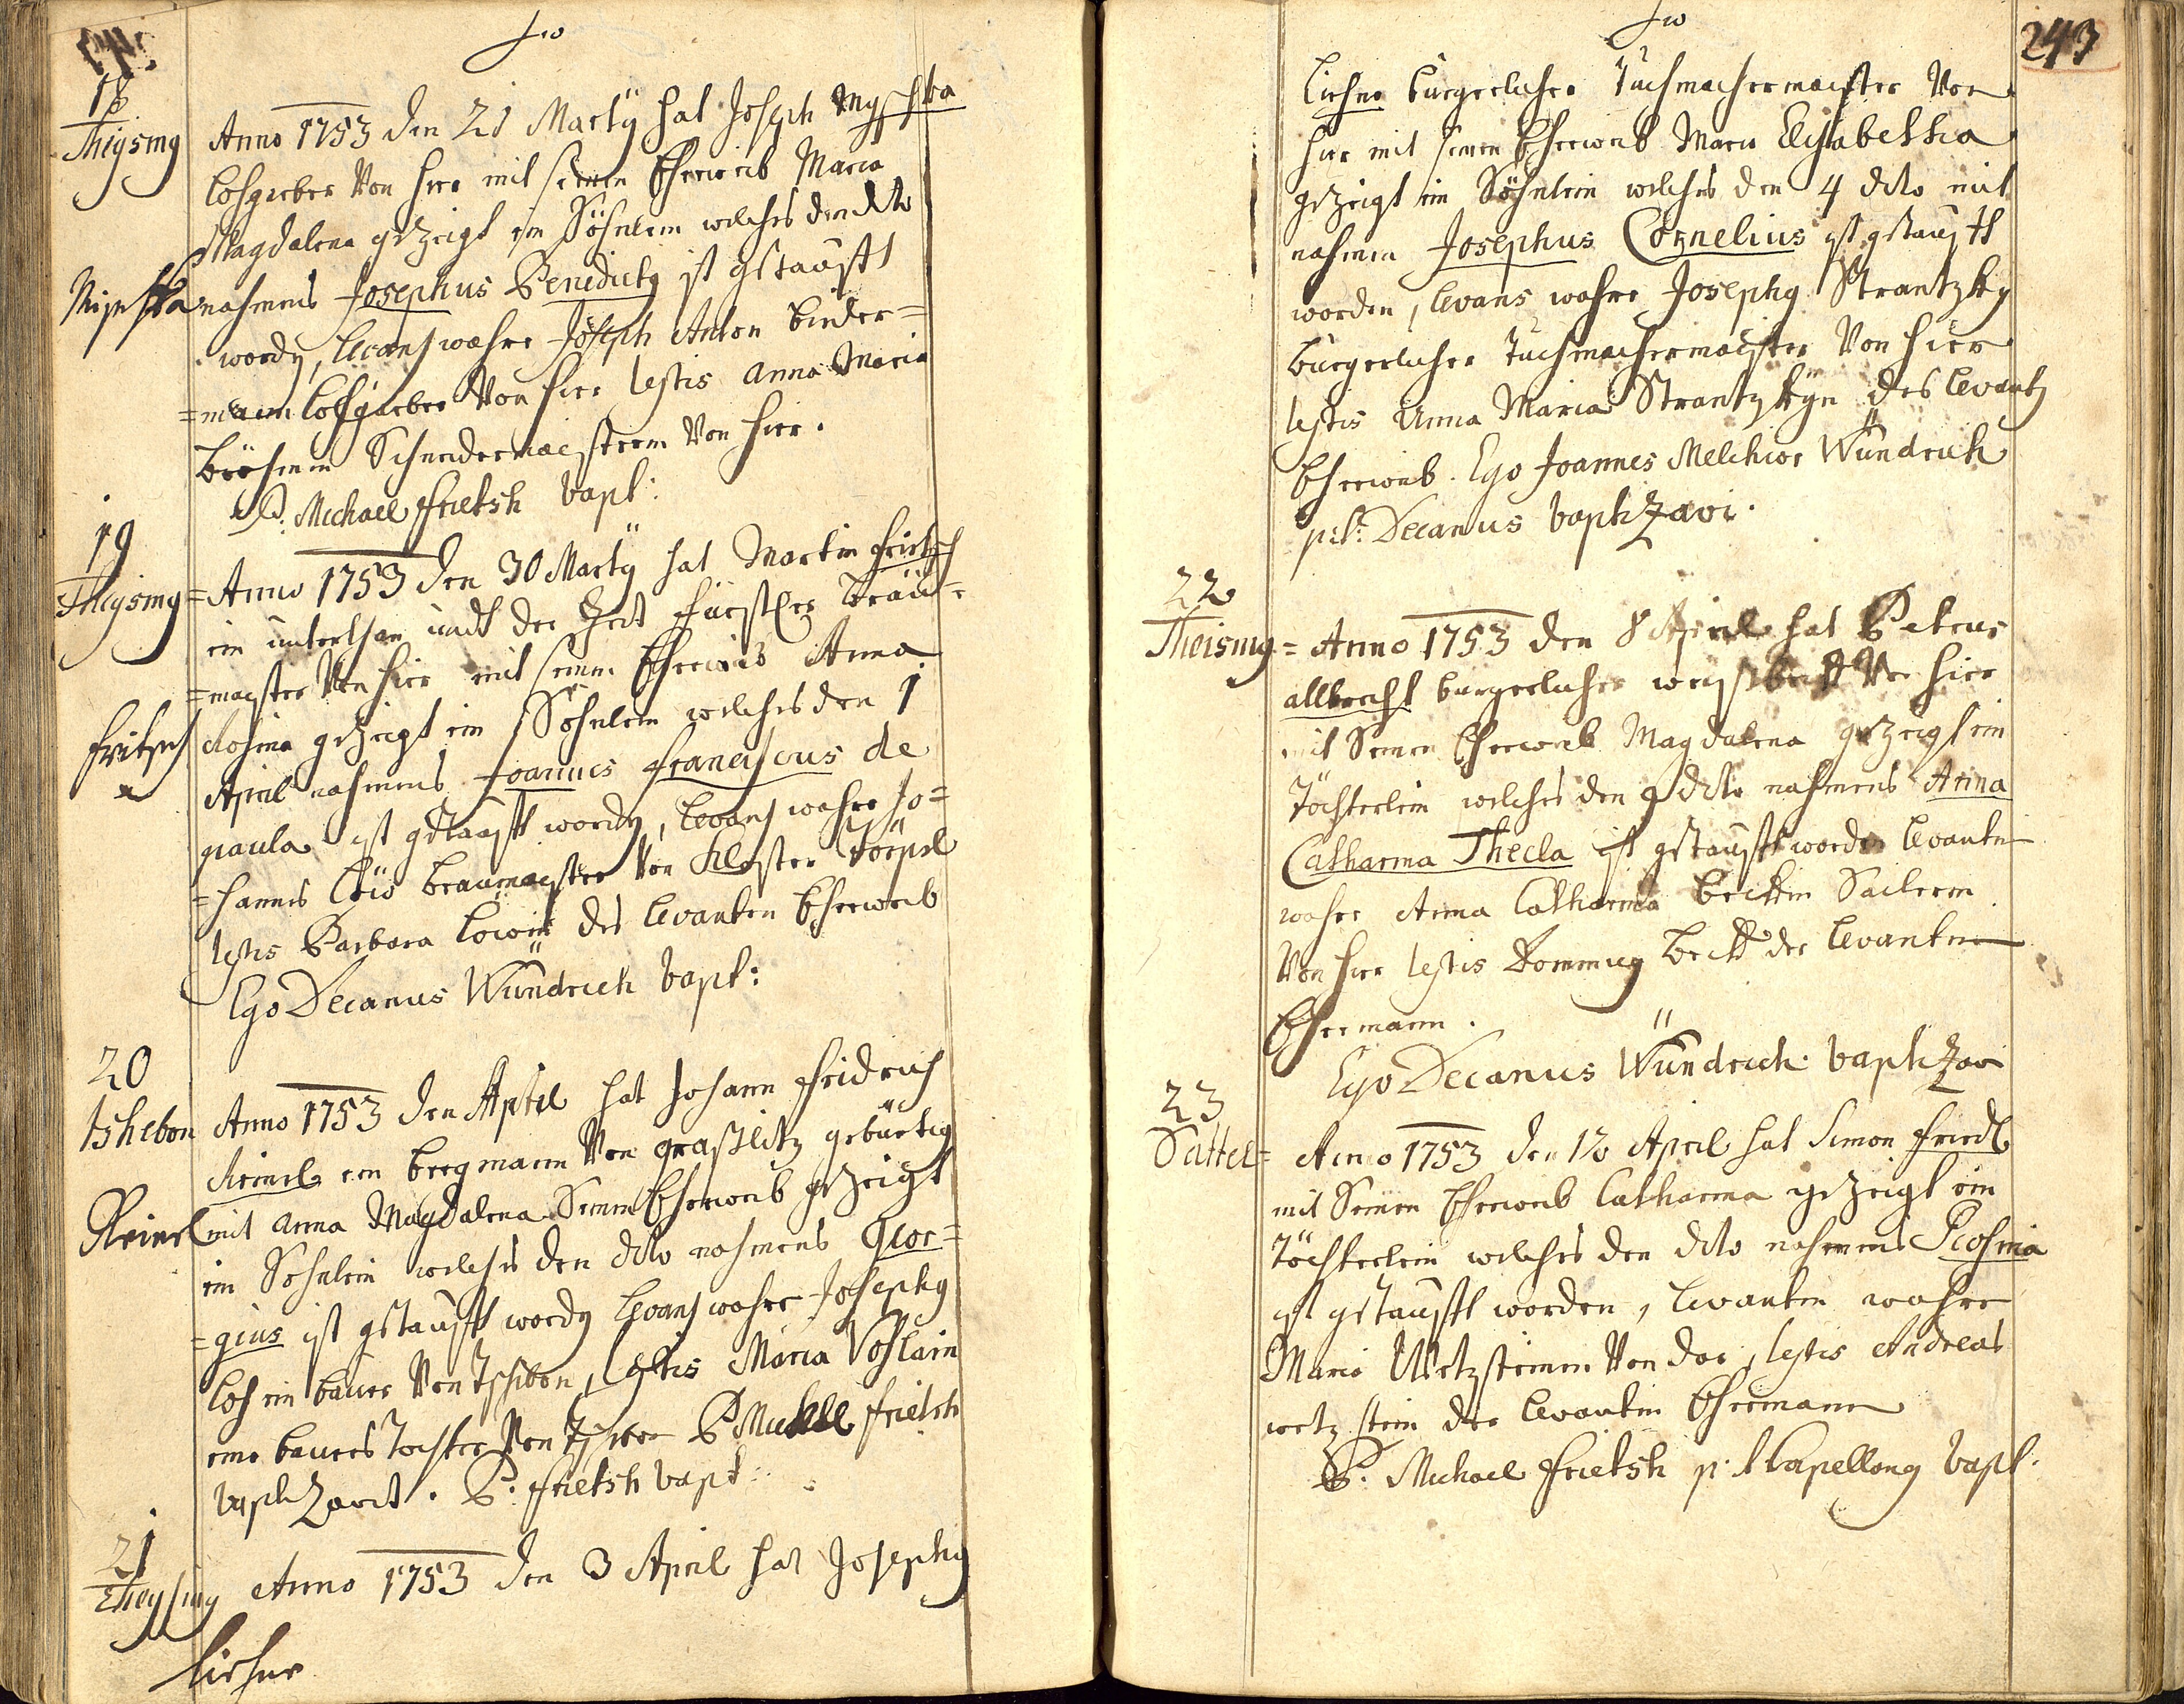 18
Theysing
Anno 1753 den 21 Martÿ hat Joseph Myschka
Lohgerber Von hier mit seinem Eheweib Maria
Magdalena gezeigt ein Söhnlein welches den dito
Mischka
nahmens Josephus Benedicty ist getaufft
wordn, Levans wahre Joseph Anton Binder=
=mann Lohgerber Von hier testis Anna Maria
Böhmin Schneidermaisterin Von hier.
P. Michael Frietsh bapt:
19
Theysing
= Anno 1753 den 30 Martÿ hat Martin Fritsch
ein unterthan undt der Zeit Fürstler Bräü=
=maister Von hier mit seinem Eheweib Anna
Fritsch
Rosina gezeigt ein Söhnlein welches den 1
April nahmens Joannes Franciscus de
paula ist getaufft wordn, Levans wahre Jo=
=hannes Braumaister Von Kloster Töepel
testis Barbara Löwin des Levanten Eheweib
Ego Decanus Wündrich bapt:
20
tshebon
Anno 1753 den April hat Johann Fridrich
Reinel ein Bergmann Von graßlitz gebürtig
Reinel
mit Anna Magdalena Seinem Eheweib gezeigt
ein Sohnlein welches den dito nahmens Geor=
=gius ist getaufft wordn Levans wahre Josephy
Loh ein bauer Von Tschebon, testis Maria
eine bauers Tochter Von P Michael Frietsh
baptizavit. P: Frietsh bapt:
21
Theysing
Anno 1753 den 3 April hat Josephy
Liehne
243
Liehne Bürgerlicher Tuchmachermaister Von
hier mit seinem Eheweib Maria Elisabetha
gezeigt ein Söhnlein welches den 4 dito mit
nahmen Josephus Cornelius ist getaufft
worden, levans wahre Josephy Strantzky
bürgerlicher Tuchmachermaister Von hier
testis Anna Maria Strantzkyn des Levantz
Eheweib. Ego Joannes Melchior Wündrich
p:t: Decanus baptizavi.
22
Theising
= Anno 1753 den 8 April hat Petrus
allbrecht bürgerlicher Von hier
mit Seinem Eheweib Magdalena gezeigt ein
Töchterlein welches den 9 dito nahmens Anna
Catharina Thecla ist getaufft worden Levantin
wahre Anna Catharina Beckin Sailerin
Von hier testis Dominicy Beck der Levantin
Ehemann.
Ego Decanus Wündrich baptizavi
23
Sattel
= Anno 1753 den 12 April hat Simon Friedl
mit Seinem Eheweib Catharina gezeigt ein
Töchterlein welches den dito nahmens Rosina
ist getaufft worden, Levantin wahre
Maria Wetzsteinin Von dar, testis Andreas
wetzstein der Levantin Ehemann
P: Michael Frietsh p:t Capellany bapt: